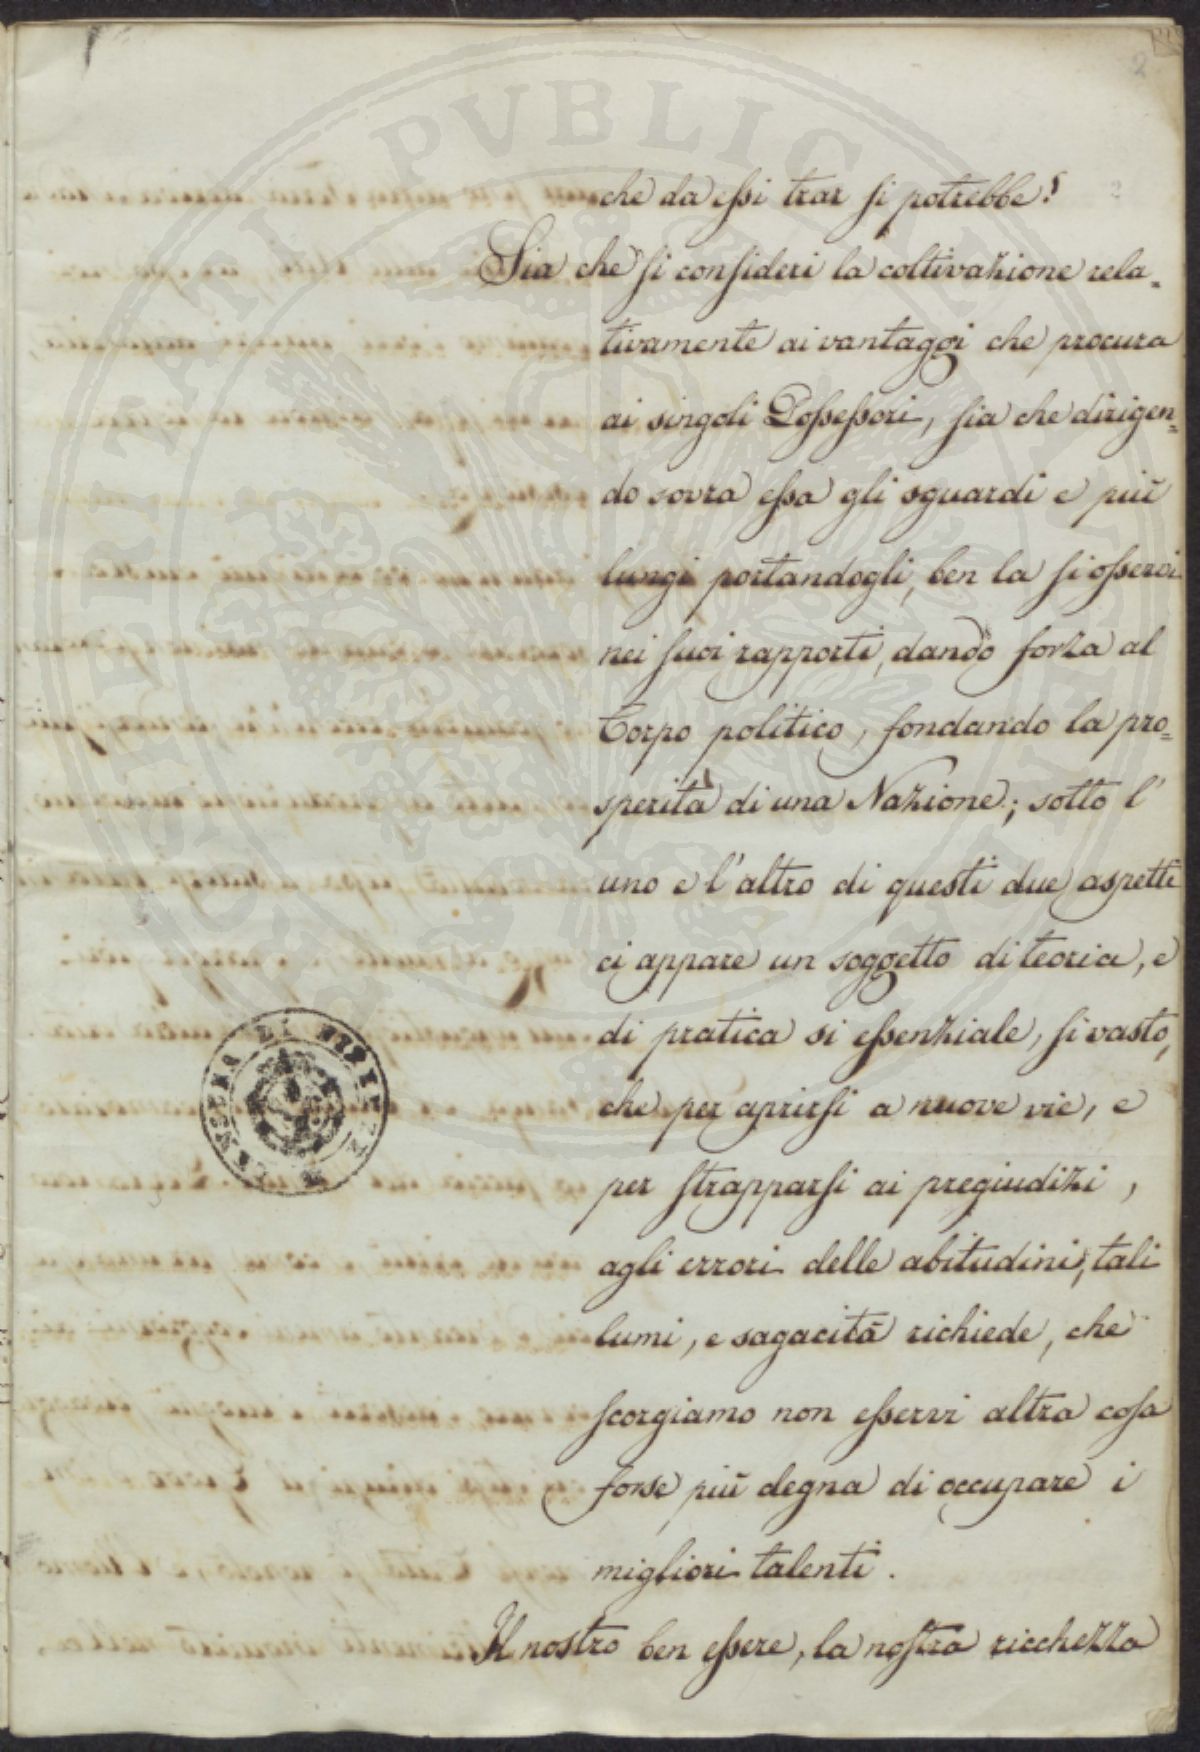 2
che da essi trar si potrebbe!
Sia che si consideri la coltivazione rela=
tivamente ai vantaggi che procura
ai singoli Possessori, sia che dirigen=
do sovra essa gli sguardi e più
lungi portandogli, ben la si osservi
nei suoi rapporti, dando forza al
Corpo politico, fondando la pro=
sperità di una Nazione; sotto l'
uno e l'altro di questi due aspetti
ci appare un soggetto di teoria, e
di pratica si essenziale, si vasto,
che per aprirsi a nuove vie, e
per strapparsi ai pregiudizi,
agli errori delle abitudini, tali
lumi, e sagacità richiede, che
scorgiamo non esservi altra cosa
forse più degna di occupare i
migliori talenti.
Il nostro ben essere, la nostra ricchezza